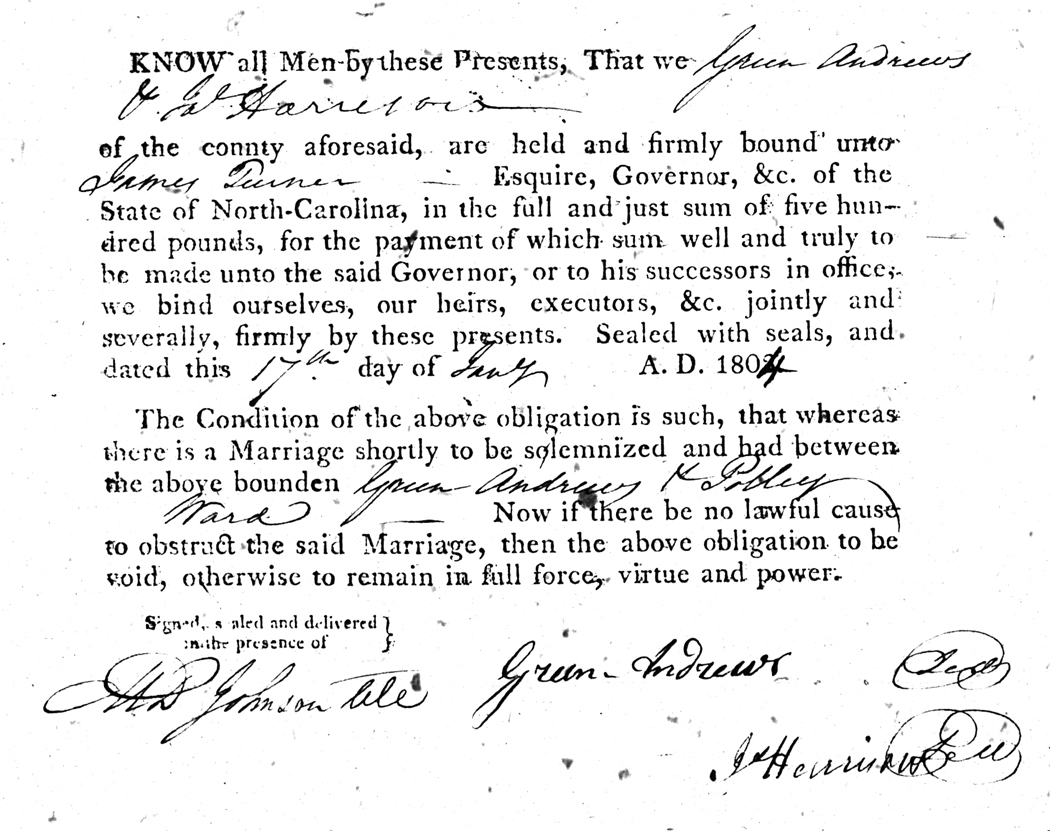 KNOW all Men by these Presents, That we Green Andrews
& Js Harrison
of the county aforesaid, are held and firmly bound unto
James Turner Esquire, Governor, &c. of the
State of North-Carolina, in the full and just sum of five hun-
dred pounds, for the payment of which sum well and truly to
be made unto the said Governor, or to his successors in office,
we bind ourselves, our heirs, executors, &c. jointly and
severally, firmly by these presents. Sealed with seals, and
dated this 17th day of Jany A. D. 1804
The Condition of the above obligation is such, that whereas
there is a Marriage shortly to be solemnized and had between
the above bounden Green Andrews &
Ward Now if there be no lawful cause
to obstruct the said Marriage, then the above obligation to be
void, otherwise to remain in full force, virtue and power.
Signed, sealed and delivered }
in the presence of }
Johnson Green Andrews Seal
Js Harrison Seal